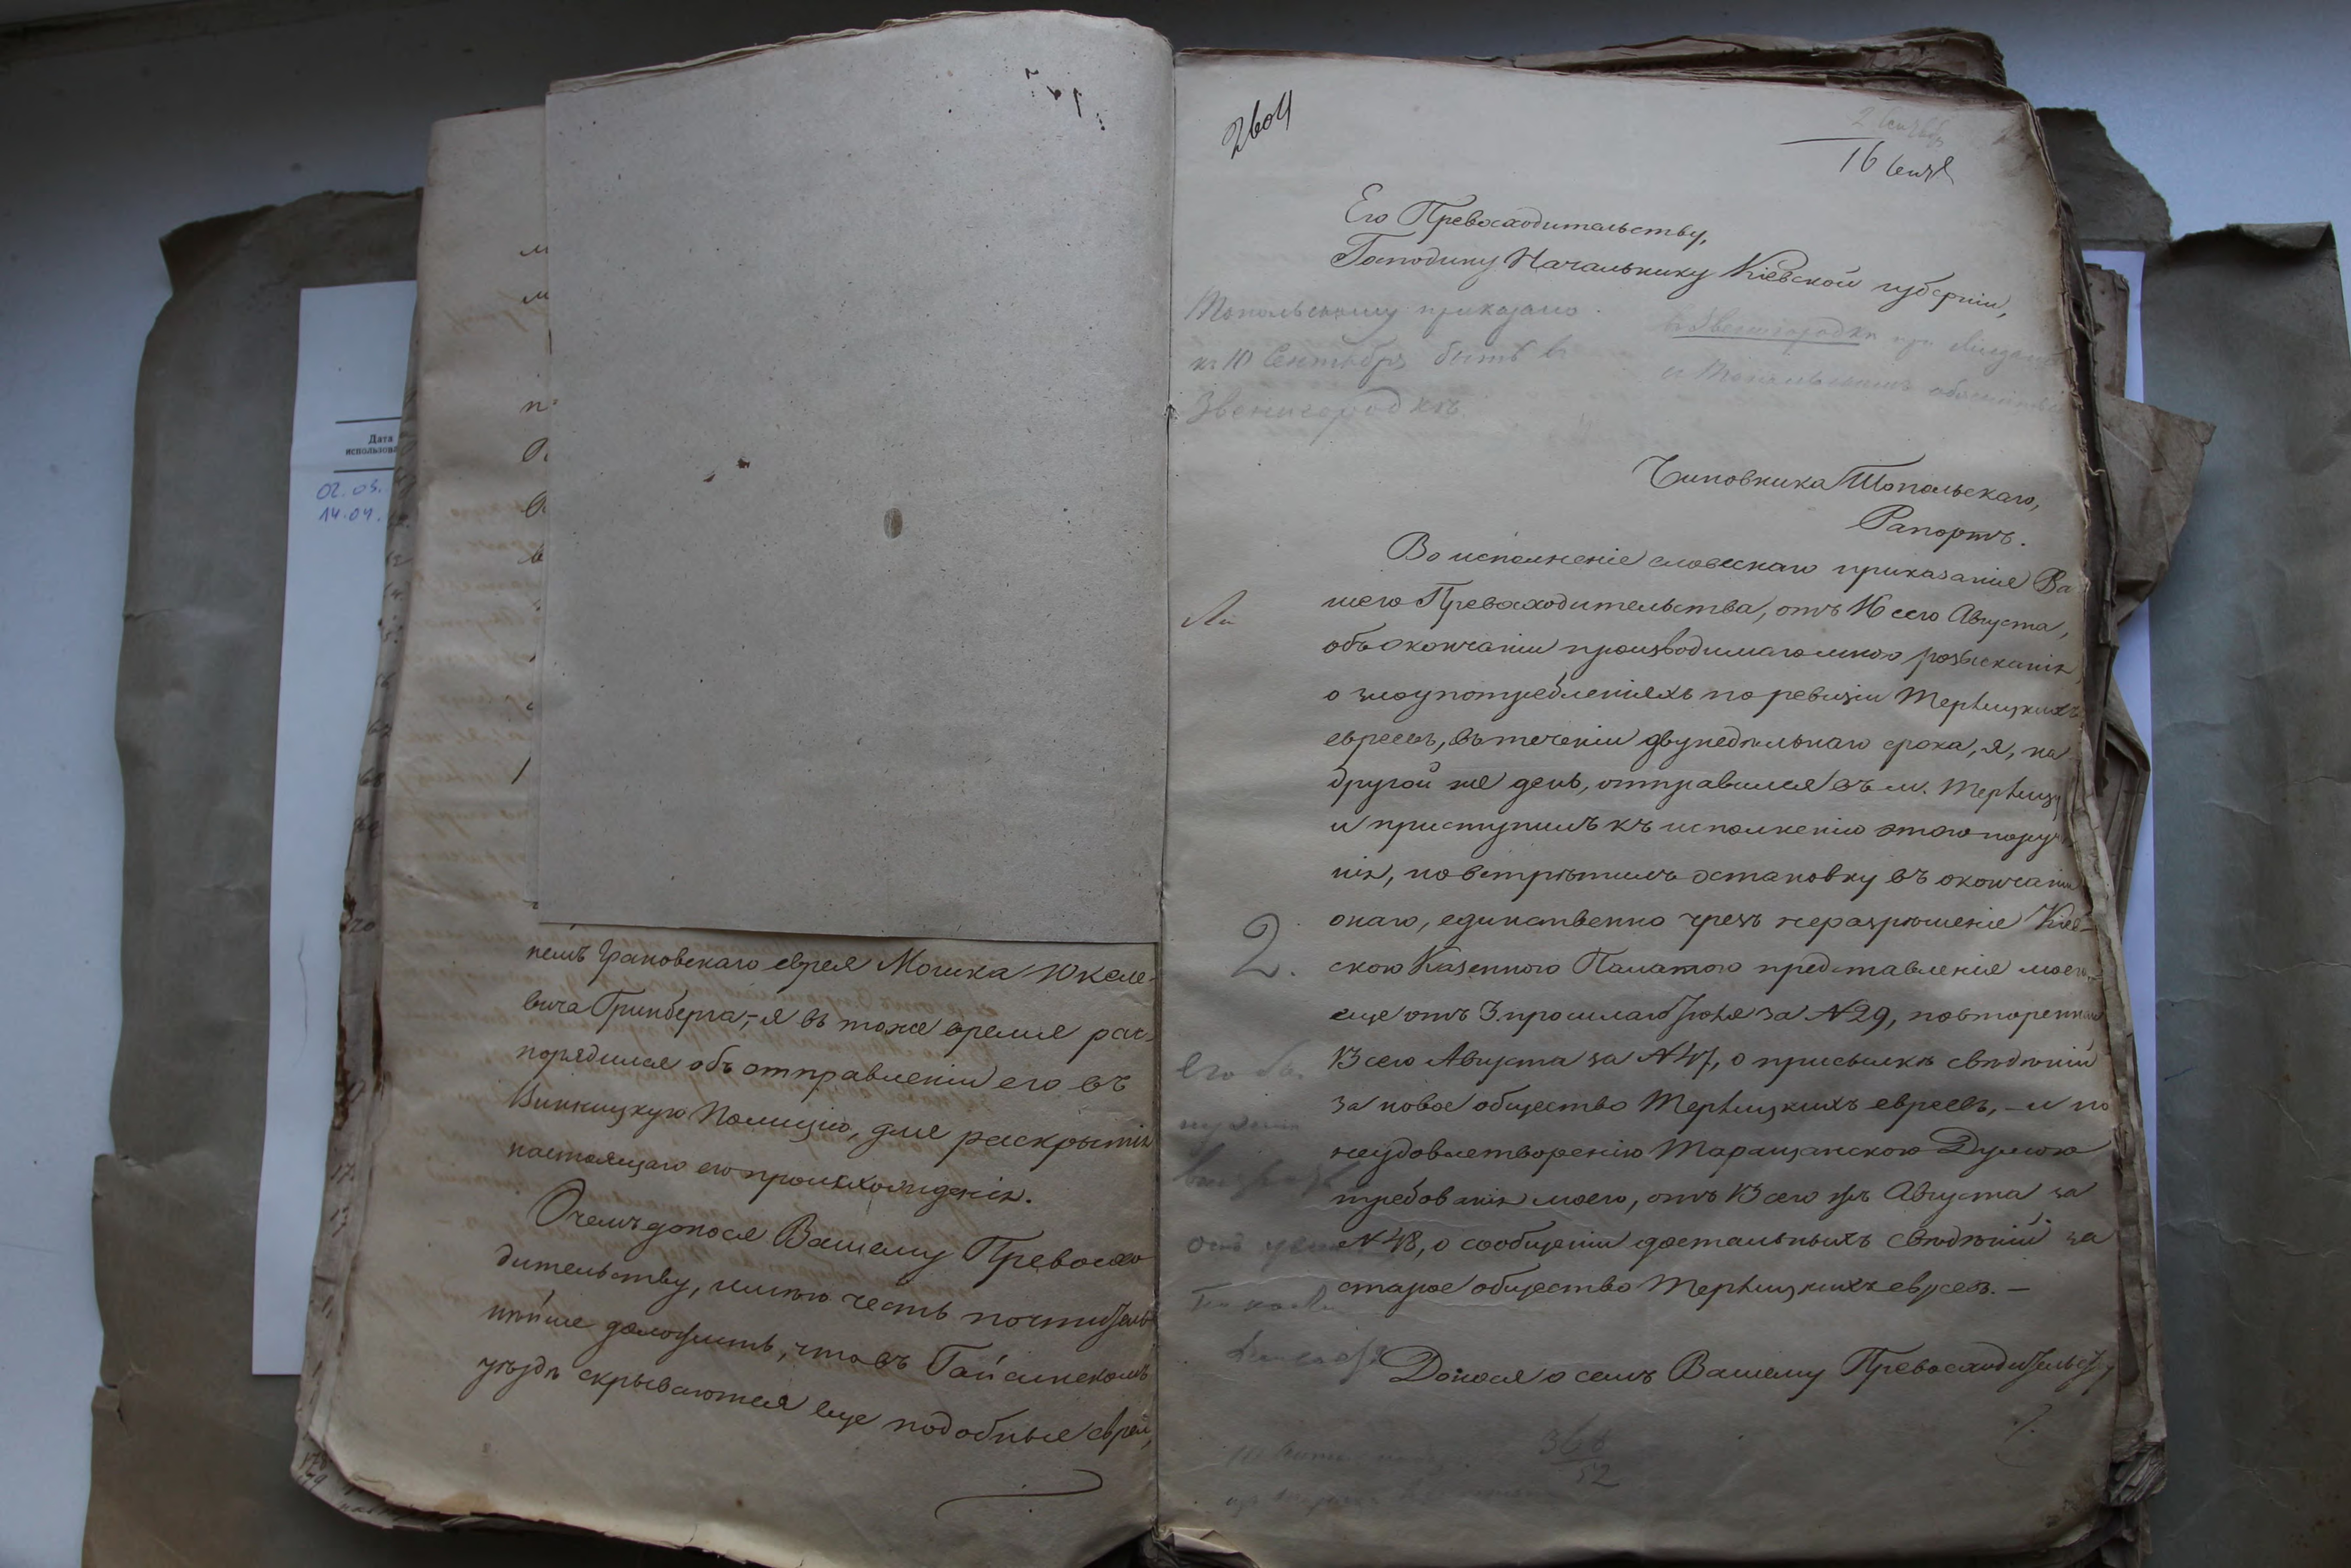 Дата
использов
02.03.
14.04.
немъ Грановскаго еврея Мошка Юкеле-
вича Гринберга, – я въ тоже время рас-
порядился объ отправленіи его въ
Винницкую Полицію, для раскрытія
настоящаго его происхожденія.
О чемъ донося Вашему Превосхо-
дительству, имѣю честь почтитель-
нѣйше доложить, что въ Гайсинскомъ
уѣздѣ скрываются еще подобные евреи,
2604
2 Сентября
16 Сент
Его Превосходительству,
Господину Начальнику Кіевской губерніи,
Топольскому приказано
къ 10 Сентября быть въ
Звенигородкѣ.
въ Звенигородкѣ при
съ Топольскимъ
Чиновника Топольскаго,
Рапортъ.
Во исполненіе словеснаго приказанія Ва
шего Превосходительства, отъ 16 сего Августа,
объ окончаніи производимаго мною розысканія
о злоупотребленіяхъ по ревизіи Терлицкихъ
евреевъ, въ теченіи двунедѣльнаго срока, я, на
другой же день, отправился въ м. Терлицу
и приступилъ къ исполненію этого поруче
нія, но встрѣтилъ остановку въ окончаніи
онаго, единственно чрезъ неразрѣшеніе Кіев-
2.
скою Казенною Палатою представленія моего,
еще отъ 3 прошлаго Іюля за N 29, повтореннаго
13 сего Августа за N 47, о присылкѣ свѣдѣній
за новое общество Терлицкихъ евреевъ, – и по
неудовлетворенію Таращанскою Думою
требованія моего, отъ 13 сего жъ Августа за
N 48, о сообщеніи достальныхъ свѣдѣній за
старое общество Терлицкихъ евреевъ. –
Донося о семъ Вашему Превосходительству
366
52